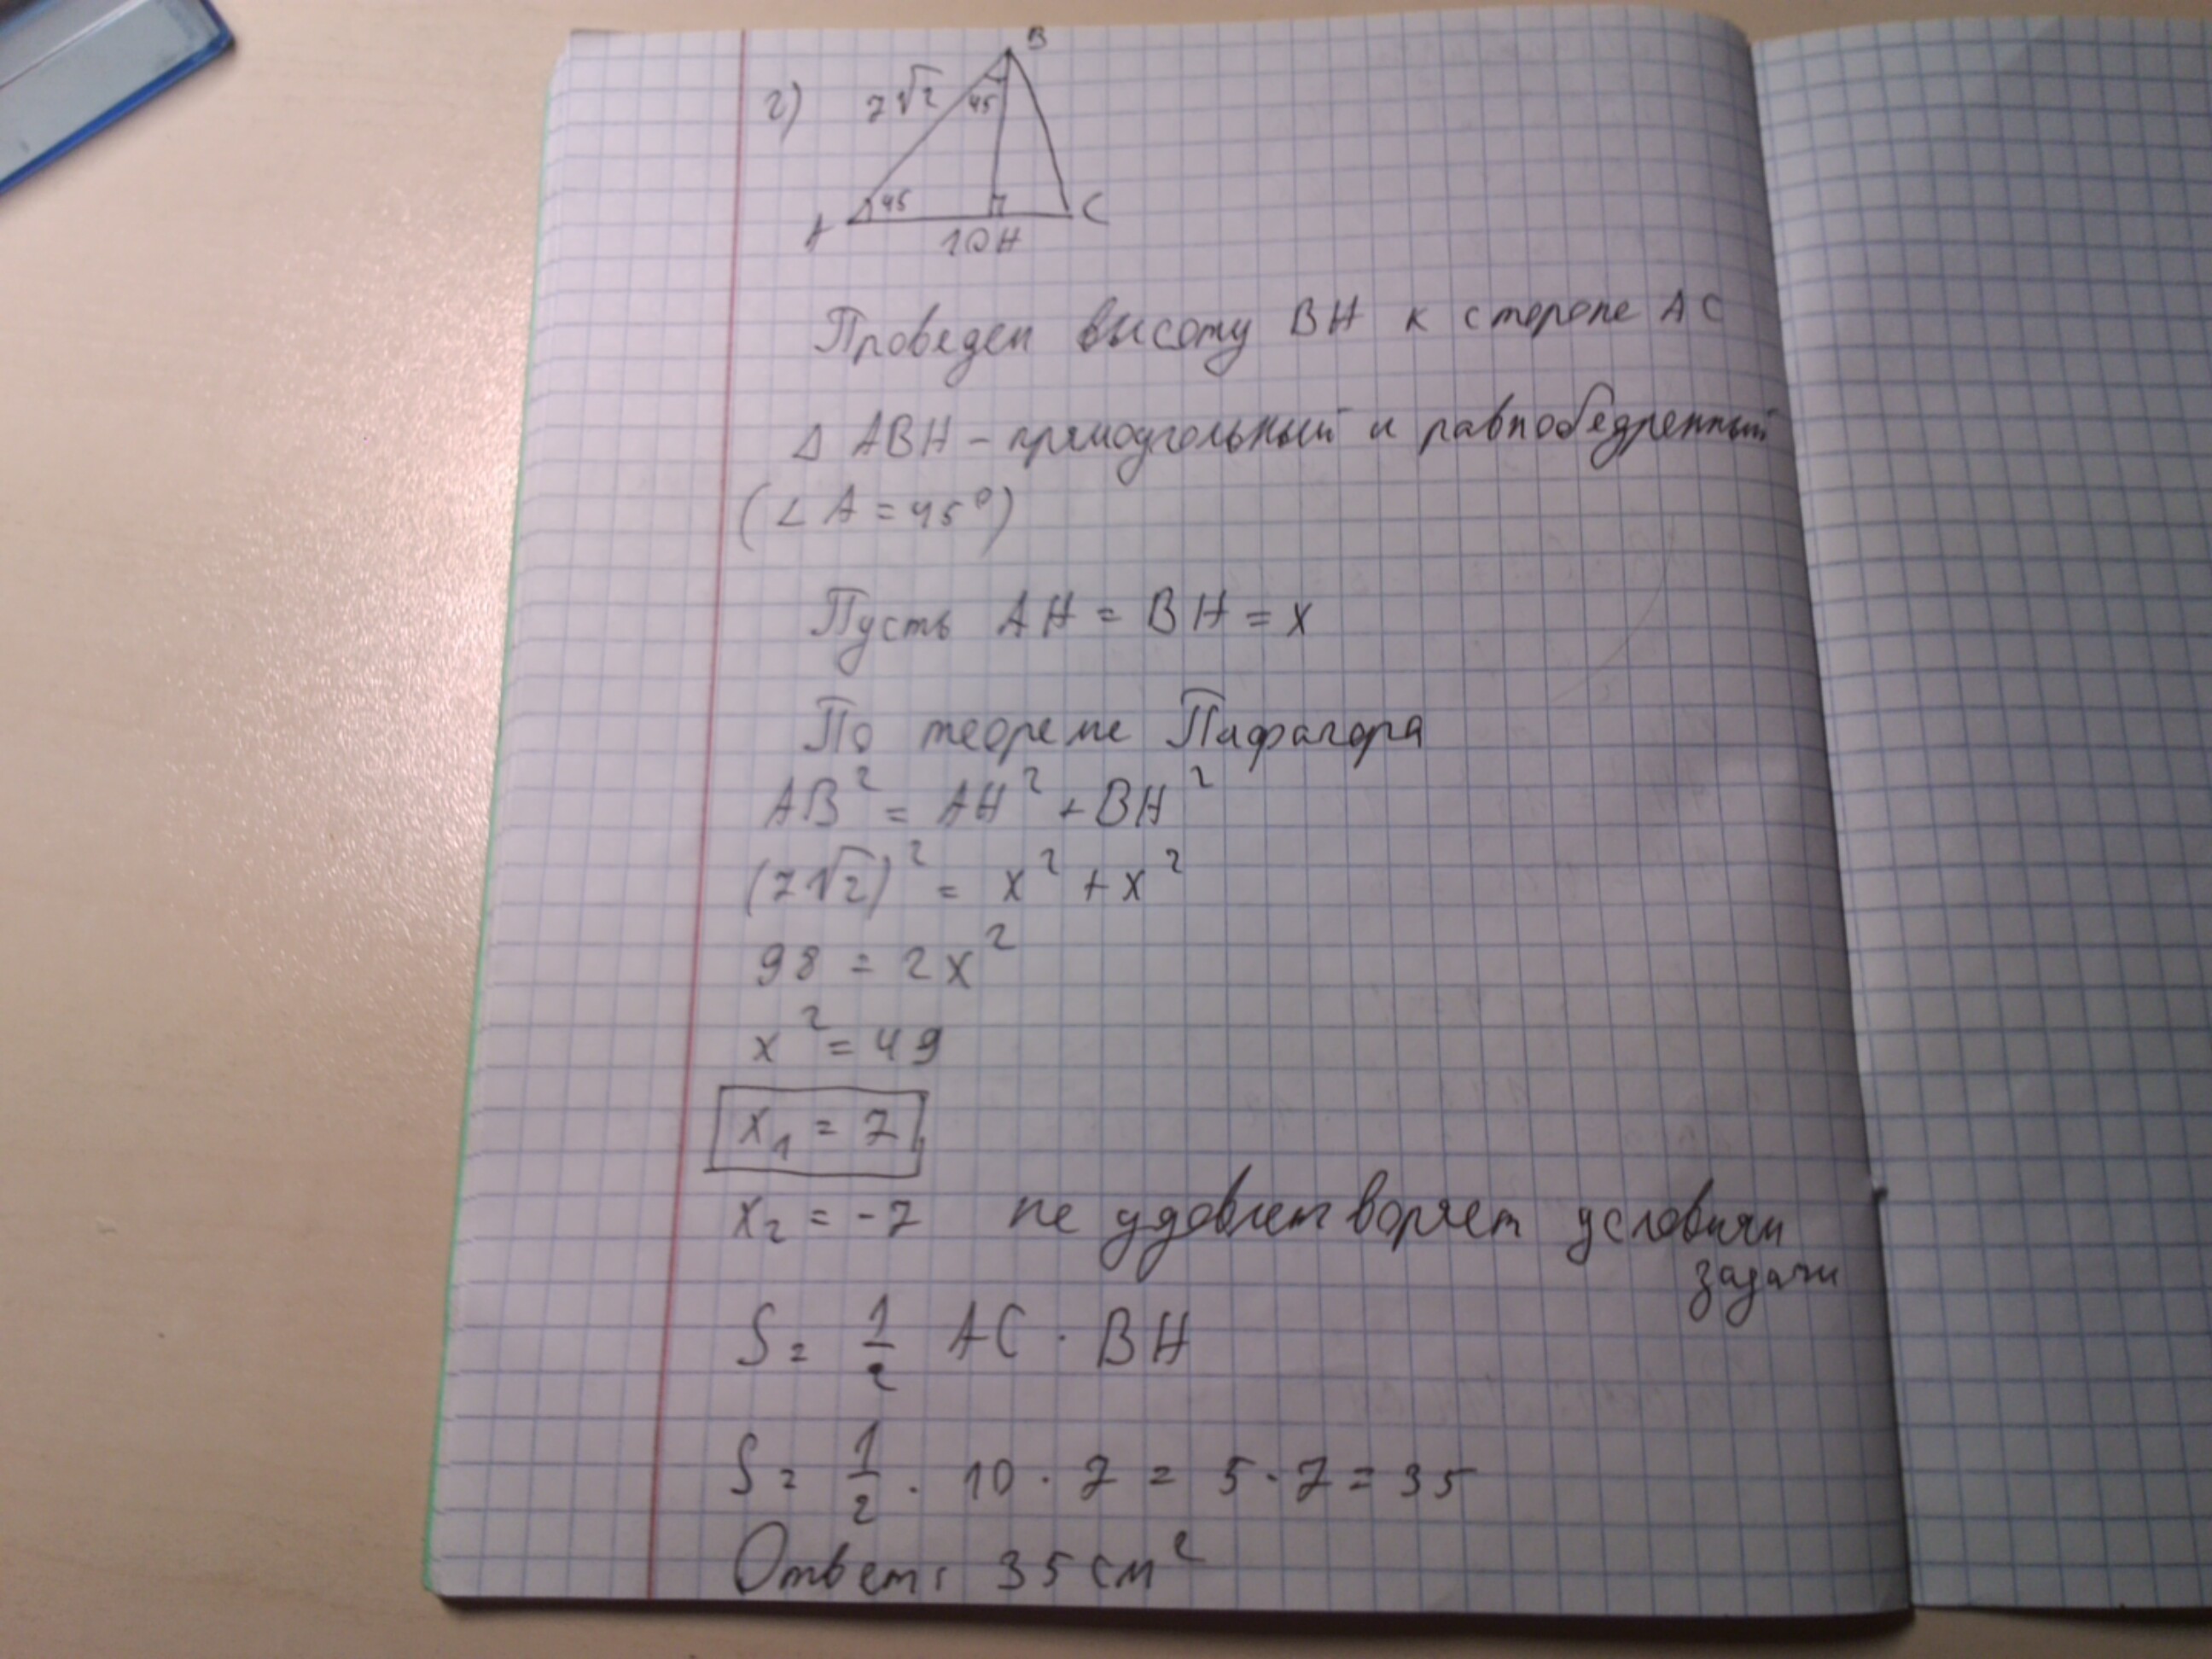 г)
B
7√2
45
45
A
C
10 H
Проведем высоту BH к стороне AC
Δ ABH - прямоугольный и равнобедренный
(∠A = 45°)
Пусть AH = BH = x
По теореме Пифагора
AB² = AH² + BH²
(7√2)² = x² + x²
98 = 2x²
x² = 49
x₁ = 7
x₂ = -7 не удовлетворяет условиям
задачи
S = 1/2 AC · BH
S = 1/2 · 10 · 7 = 5 · 7 = 35
Ответ: 35 см²